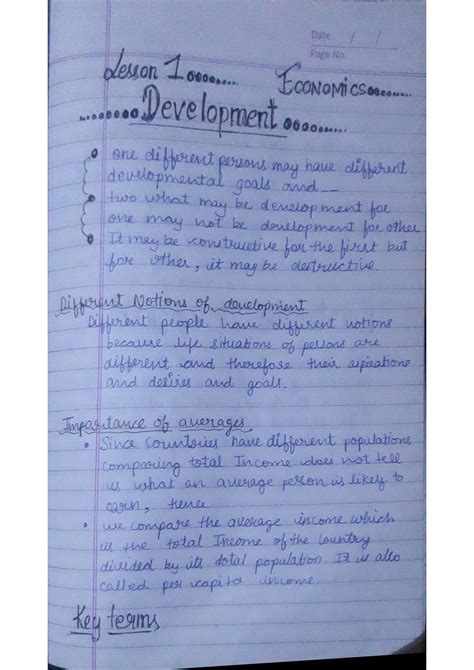 Date / /
Page No.
Lesson 1 Economics
Development
one different persons may have different
developmental goals and
two what may be development for
one may not be development for other
It may be constructive for the first but
for other, it may be destructive.
Different Notions of development
Different people have different notions
because life situations of persons are
different and therefore their aspirations
and desires and goals.
Importance of averages
Since Countries have different populations
comparing total Income does not tell
us what an average person is likely to
earn, hence
we compare the average income which
is the total Income of the Country
divided by its total population. It is also
called per capita income
Key terms